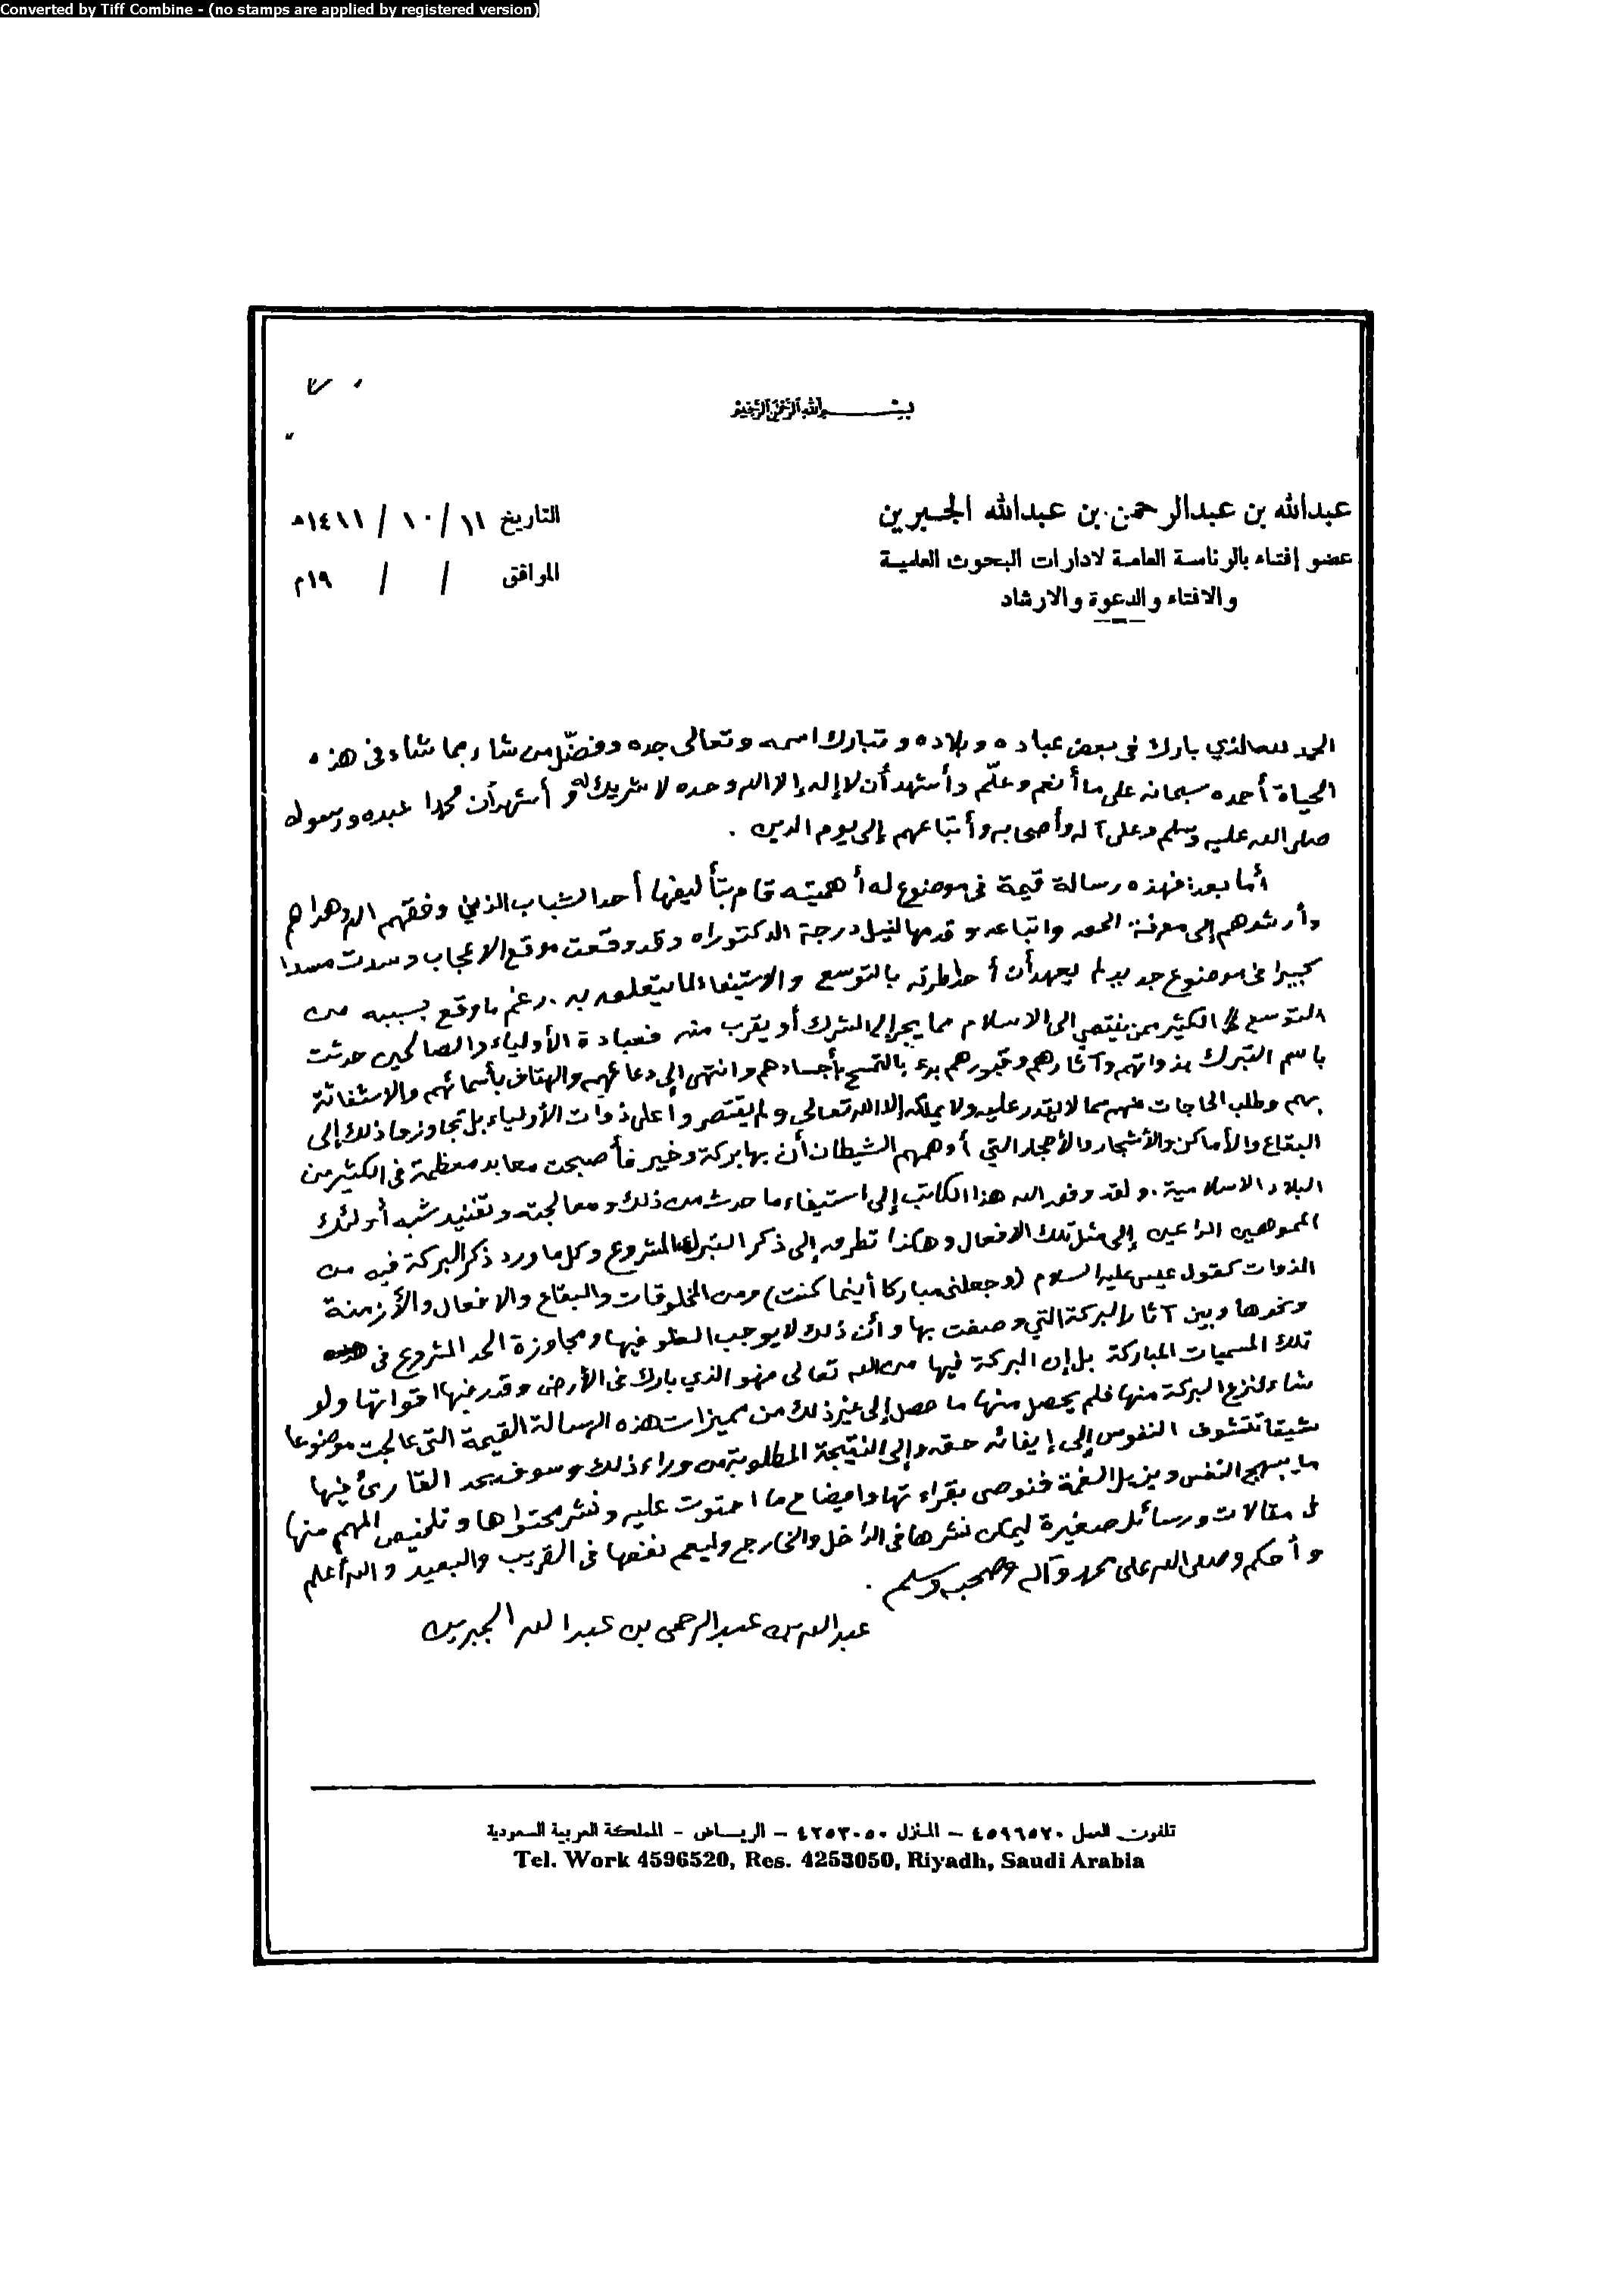 Converted by Tiff Combine - (no stamps are applied by registered version)
بسم الله الرحمن الرحيم
عبدالله بن عبدالرحمن بن عبدالله الجبرين
عضو إفتاء بالرئاسة العامة لادارات البحوث العلمية
والافتاء والدعوة والارشاد
التاريخ ١١ / ١٠ / ١٤١١هـ
الموافق / / ١٩م
الحمد لله الذي بارك في بعض عباده وبلاده وتبارك اسمه وتعالى جده وفضّل من شاء بما شاء في هذه
الحياة أحمده سبحانه على ما أنعم وعلّم وأشهد أن لا إله إلا الله وحده لا شريك له وأشهد أن محمدا عبده ورسوله
صلى الله عليه وسلم وعلى آله وأصحابه وأتباعهم إلى يوم الدين .
أما بعد: فهذه رسالة قيمة في موضوع له أهميته قام بتأليفها أحد الشباب الذين وفقهم الله وهداهم
وأرشدهم إلى معرفة الحق واتباعه وقدمها لنيل درجة الدكتوراه وقد وقعت موقع الاعجاب وسدت مسدا
كبيرا في موضوع جديد لم يعهد أن أحدا طرقه بالتوسع والاستيفاء لما يتعلق به . رغم ما وقع بسببه من
التوسع الكثير ممن ينتمي الى الاسلام مما يجر إلى الشرك أو يقرب منه فعبادة الأولياء والصالحين حدثت
باسم التبرك بذواتهم وآثارهم وقبورهم بدء بالتمسح بأجسادهم وانتهى إلى دعائهم والهتاف بأسمائهم والاستغاثة
بهم وطلب الحاجات منهم مما لا يقدر عليه ولا يملكه إلا الله تعالى ولم يقتصروا على ذوات الأولياء بل تجاوزوا ذلك إلى
البقاع والأماكن والأشجار والأحجار التي أوهمهم الشيطان أن بها بركة وخير فأصبحت معابد معظمة في الكثير من
البلاد الاسلامية . ولقد وفق الله هذا الكاتب إلى استيفاء ما حدث من ذلك ومعالجته وتفنيد شبه أولئك
المموهين الداعين إلى مثل تلك الافعال وهكذا تطرق إلى ذكر التبرك المشروع وكل ما ورد ذكر البركة فيه من
الذوات كقول عيسى عليه السلام (وجعلني مباركا أينما كنت) ومن المخلوقات والبقاع والافعال والأزمنة
ونحوها وبين آثار البركة التي وصفت بها وأن ذلك لا يوجب الغلو فيها ومجاوزة الحد المشروع في
تلك المسميات المباركة بل إن البركة فيها من الله تعالى فهو الذي بارك في الأرض وقدر فيها اقواتها ولو
شاء لنزع البركة منها فلم يحصل منها ما حصل إلى غير ذلك من مميزات هذه الرسالة القيمة التي عالجت موضوعا
شيقا تتشوف النفوس إلى إيفائه حقه وإلى النتيجة المطلوبة من وراء ذلك وسوف يجد القارئ فيها
ما يبهج النفس ويزيل الغمة فنوصي بقراءتها وايضاح ما احتوت عليه ونشر محتواها وتلخيص المهم منها
في مقالات ورسائل صغيرة ليمكن نشرها في الداخل والخارج وليعم نفعها في القريب والبعيد والله أعلم
وأحكم وصلى الله على محمد وآله وصحبه وسلم .
عبدالله بن عبدالرحمن بن عبدالله الجبرين
تلفون العمل ٤٥٩٦٥٢٠ - المنزل ٤٢٥٣٠٥٠ - الرياض - المملكة العربية السعودية
Tel. Work 4596520, Res. 4253050, Riyadh, Saudi Arabia